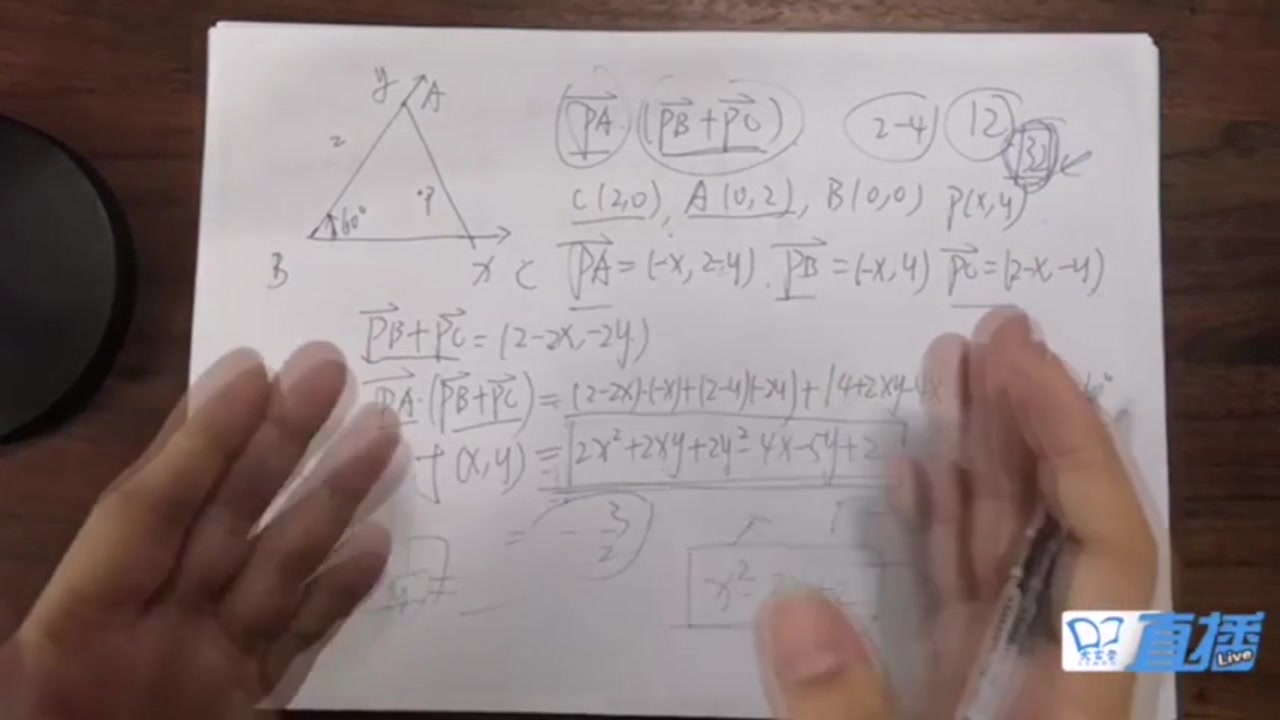 y A
2
60°
P
B
x C
PA (PB+PC) 2-4 12
C(2,0), A(0,2), B(0,0) P(x,y)
PA=(-x,2-y). PB=(-x,y) PC=(2-x-y)
PB+PC=(2-2x,-2y)
PA·(PB+PC)=(2-2x)·(-x)+(2-y)(-2y)+(4+2xy-4x
f(x,y)=2x²+2xy+2y²-4x-5y+2
=-3/2
x²
直播
Live